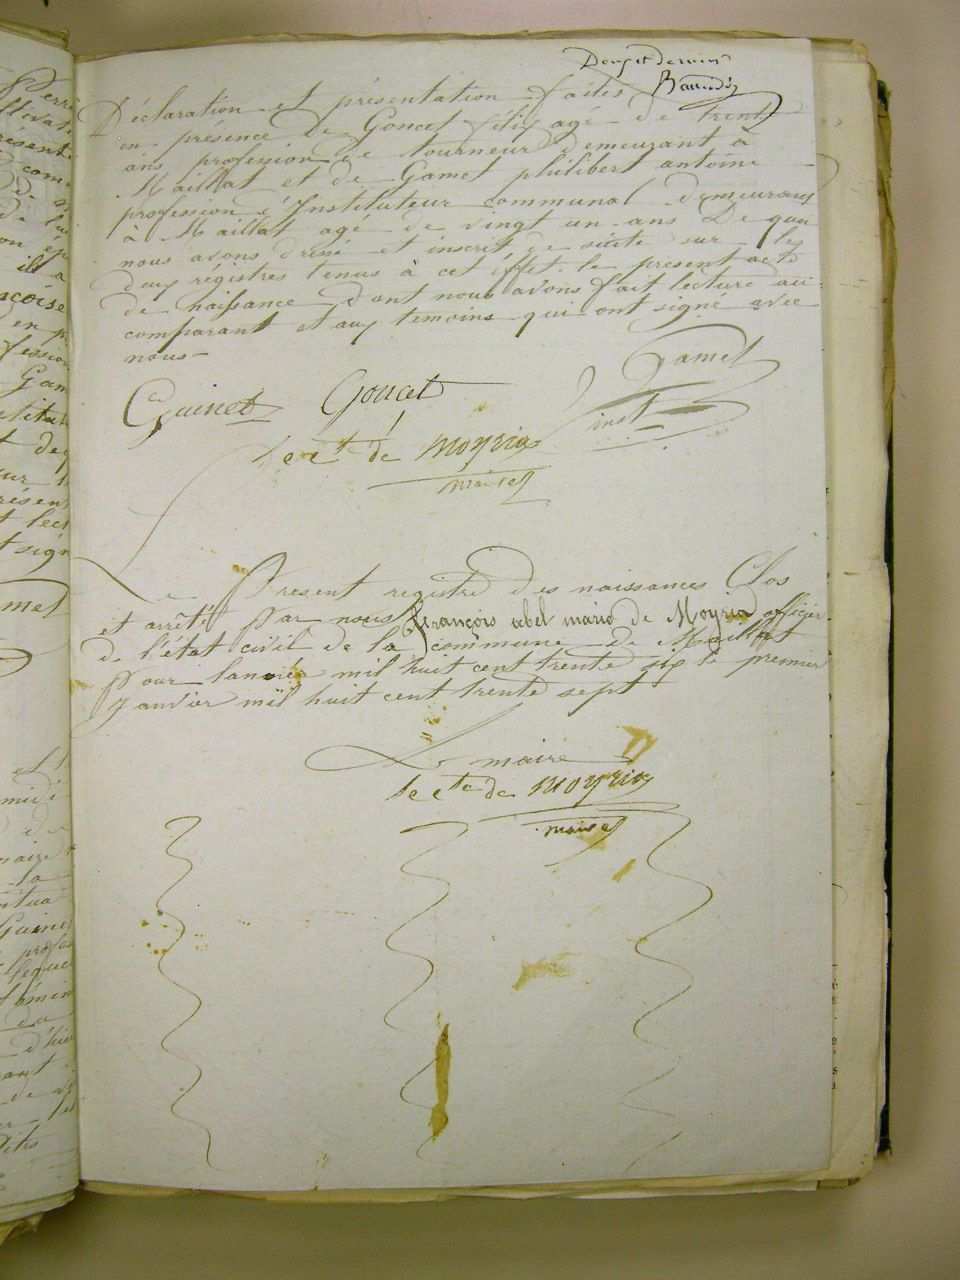 Déclaration et présentation faites
en présence de Goncet félix agé de trente
ans profession de tourneur demeurant à
Maillat et de Gamet philibert antoine
profession d'Instituteur communal demeurant
à Maillat agé de vingt un ans De quoi
nous avons dressé et inscrit de suite sur les
deux régistres tenus à cet éffet le present acte
de naissance dont nous avons fait lecture au
comparant et aux temoins qui ont signé avec
nous
Guinet Goncet Gamet
inst
le cte de Moyria
maire
Le Present registre des naissances Clos
et arrêté Par nous françois abel marie de Moyria officier
de l'état civil de la commune de Maillat
Pour lannée mil huit cent trente six le premier
Janvier mil huit cent trente sept
Le maire
le cte de Moyria
maire